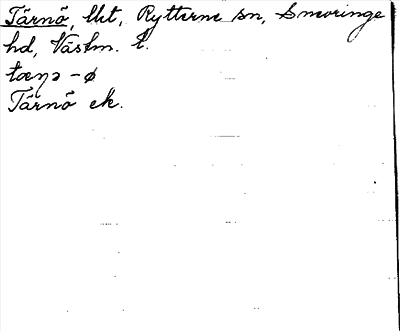 Tärnö, lht, Rytterne sn, Snevringe
hd, Västm. l.
tæɳə - ø
Tärnö ek.